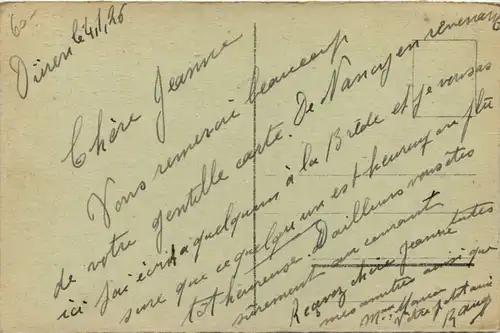 60-
Dieren le 4/1, 26
Chère Jeanne
Vous remercie beaucoup
de votre gentille carte. De Nancy en revenant
ici j'ai écrit a quelqu'un à la Brède et je vous as
sure que ce quelqu'un est heureux ou plu
tot heureuse. D'ailleurs vous êtes
surement au courant
Recevez chère Jeanne
mes amitiés ainsi que
Votre petit ami